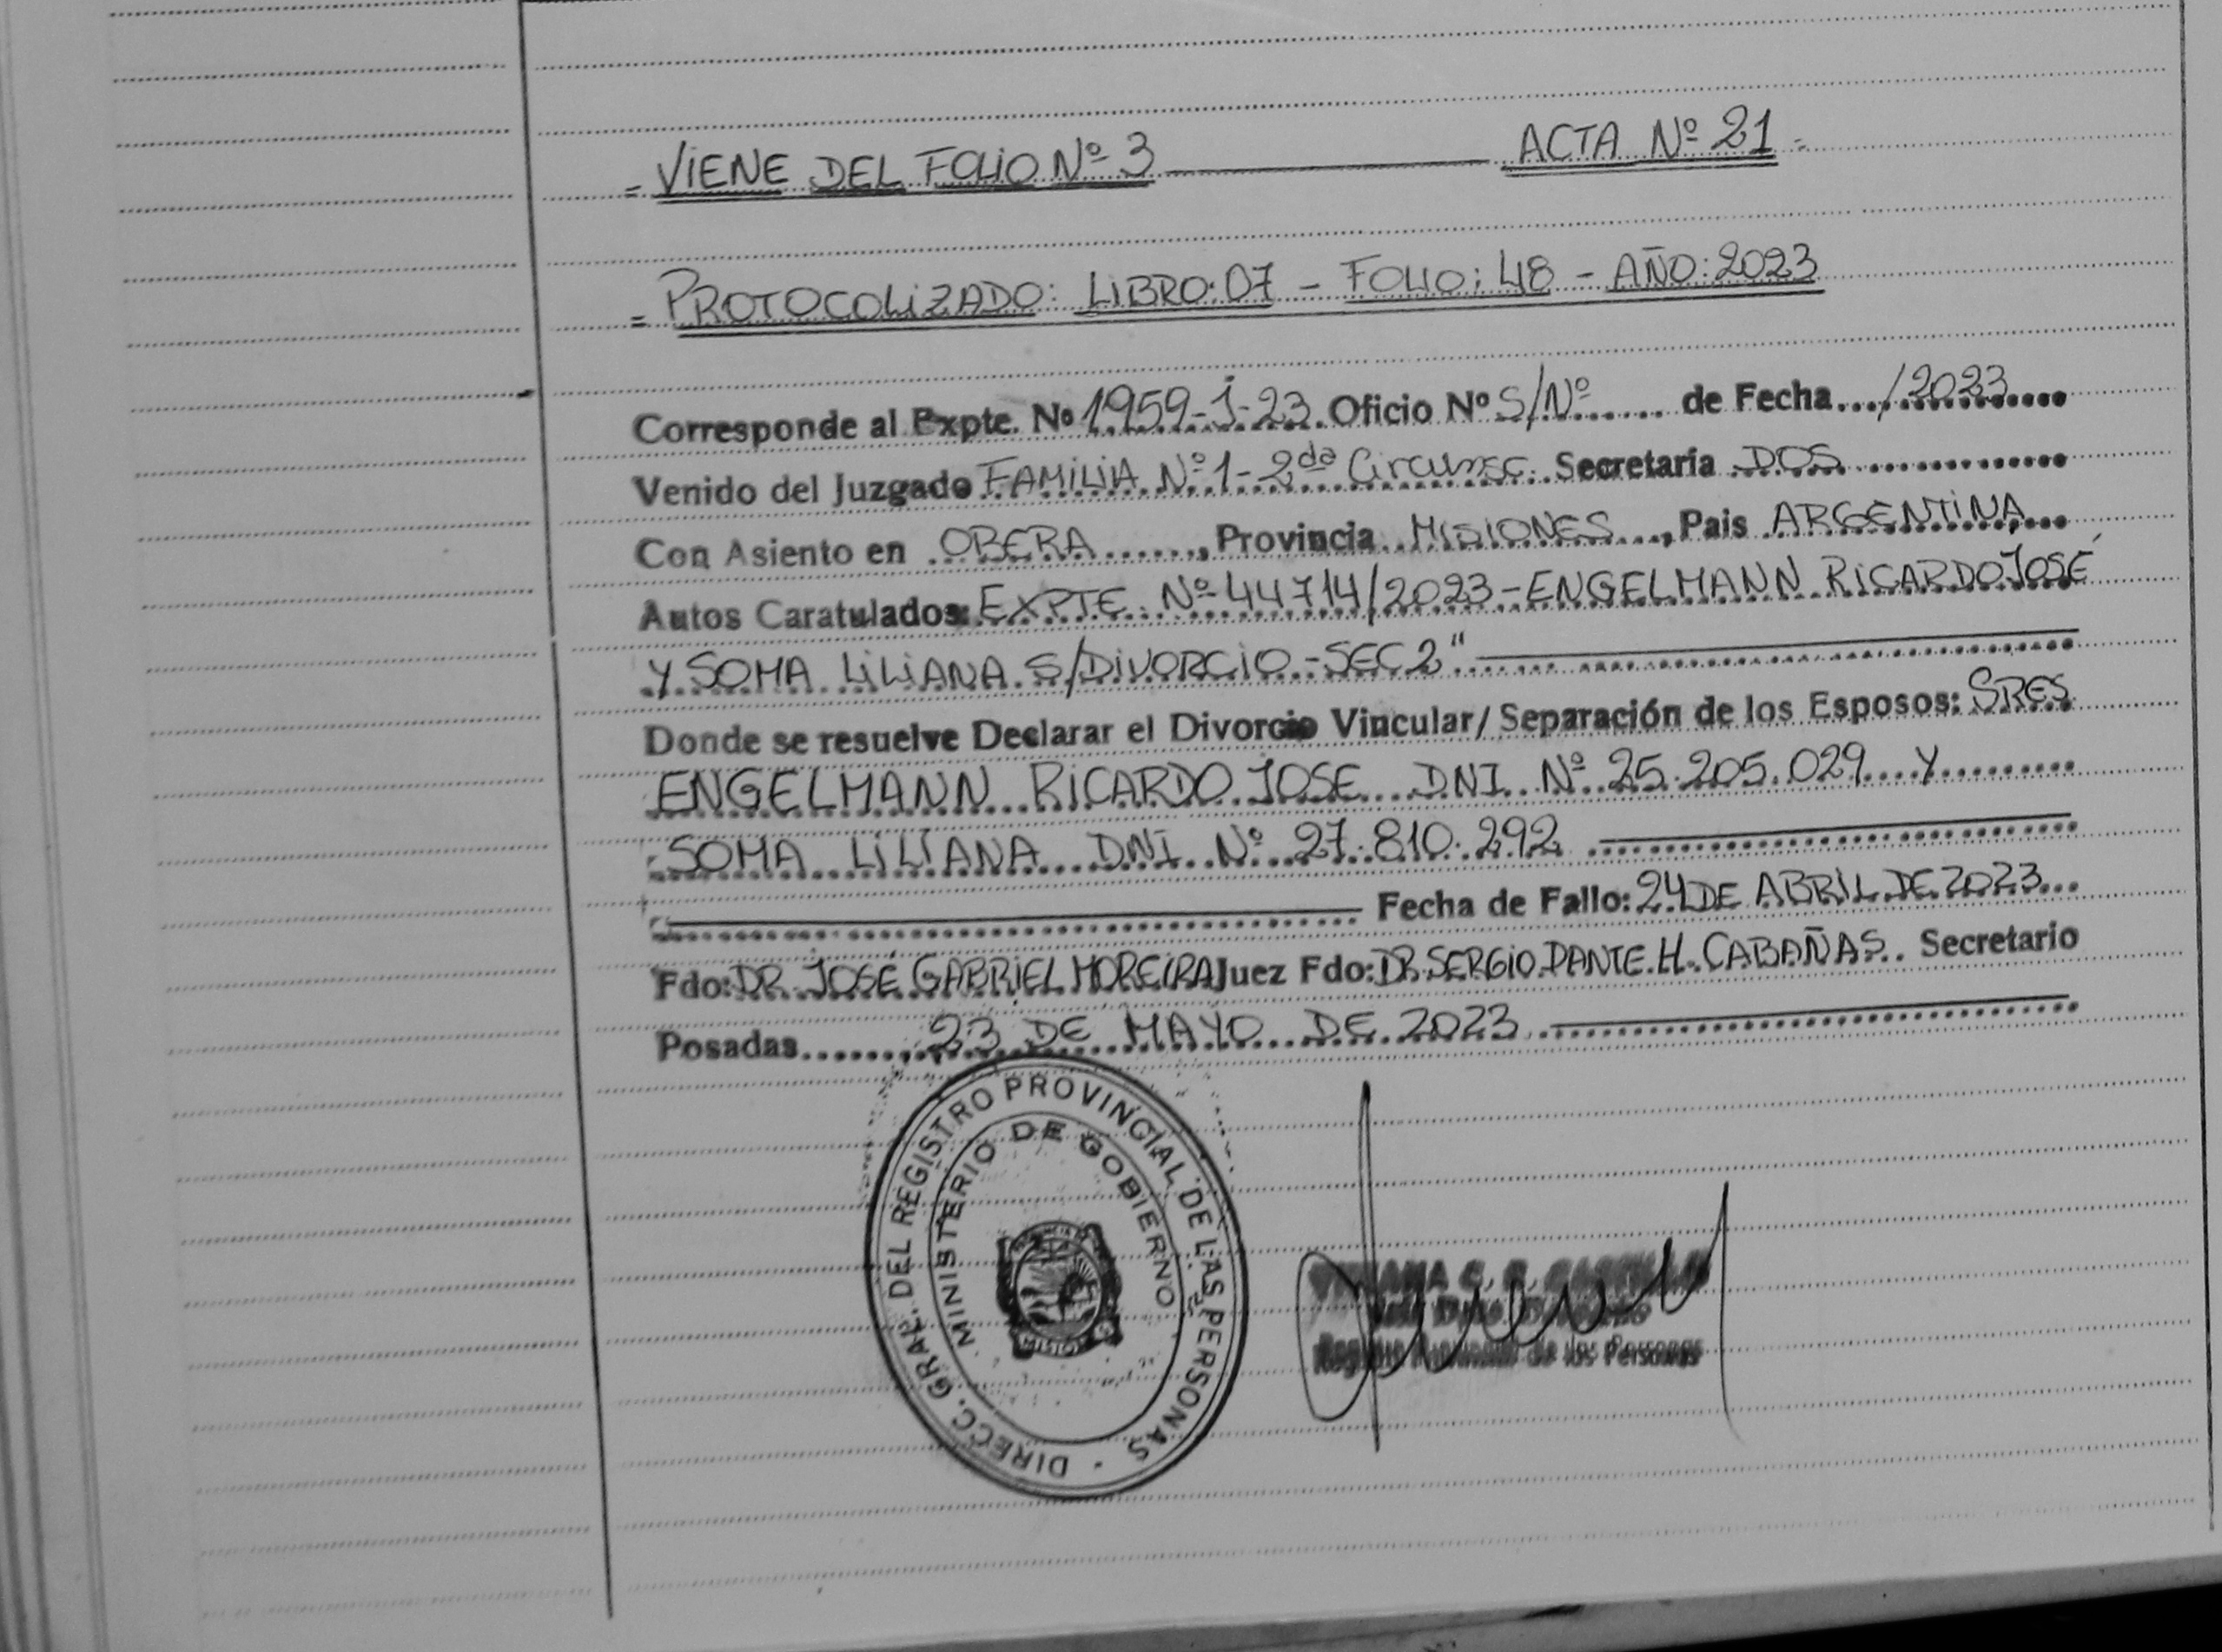 = VIENE DEL FOLIO Nº 3 ——— ACTA Nº 21 =
= PROTOCOLIZADO: LIBRO: 07 - FOLIO: 48 - AÑO: 2023
Corresponde al Expte. Nº 1959-J-23. Oficio Nº S/Nº...... de Fecha..../2023....
Venido del Juzgado FAMILIA Nº 1 - 2da Circunsc. Secretaría DOS..............
Con Asiento en OBERA......., Provincia MISIONES...., Pais ARGENTINA....
Autos Caratulados: EXPTE. Nº 44714/2023 - ENGELMANN RICARDO JOSÉ
Y SOMA LILIANA S/DIVORCIO - SEC 2"
Donde se resuelve Declarar el Divorcio Vincular/ Separación de los Esposos: SRES
ENGELMANN RICARDO JOSE DNI Nº 25.205.029 Y
SOMA LILIANA DNI Nº 27.810.292
Fecha de Fallo: 24 DE ABRIL DE 2023
Fdo: DR. JOSÉ GABRIEL MOREIRA Juez Fdo: DR. SERGIO DANTE H. CABAÑAS. Secretario
Posadas....... 23 DE MAYO DE 2023
DIRECC. GRAL. DEL REGISTRO PROVINCIAL DE LAS PERSONAS
MINISTERIO DE GOBIERNO
de las Personas